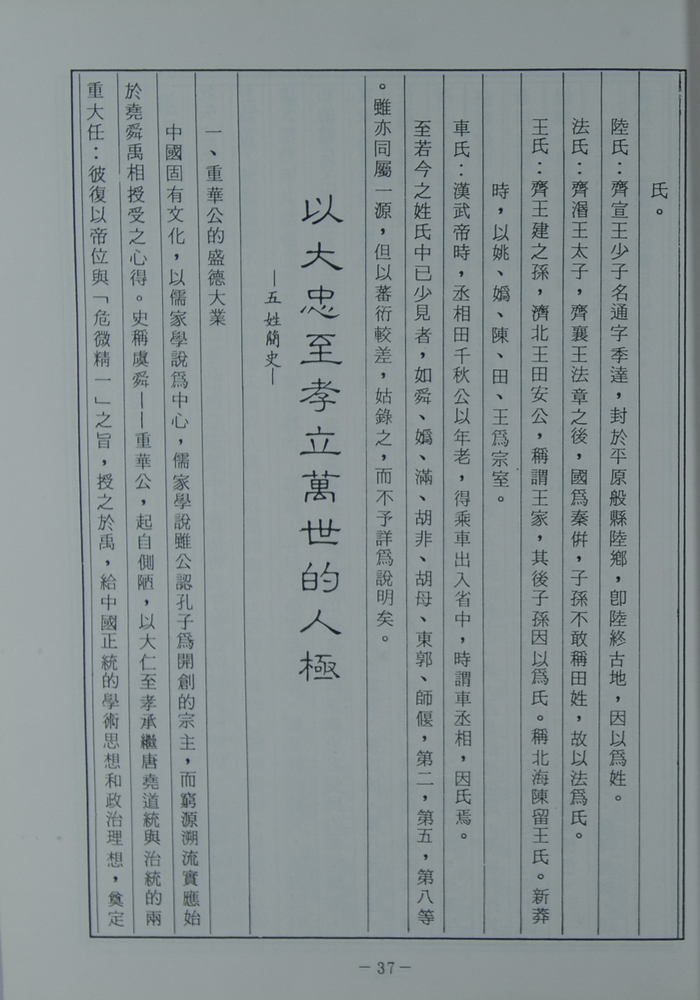 氏。
陸氏：齊宣王少子名通字季達，封於平原般縣陸鄉，卽陸終古地，因以爲姓。
法氏：齊湣王太子，齊襄王法章之後，國爲秦併，子孫不敢稱田姓，故以法爲氏。
王氏：齊王建之孫，濟北王田安公，稱謂王家，其後子孫因以爲氏。稱北海陳留王氏。新莽
時，以姚、嬀、陳、田、王爲宗室。
車氏：漢武帝時，丞相田千秋公以年老，得乘車出入省中，時謂車丞相，因氏焉。
至若今之姓氏中已少見者，如舜、嬀、滿、胡非、胡母、東郭、師偃，第二，第五，第八等
。雖亦同屬一源，但以蕃衍較差，姑錄之，而不予詳爲說明矣。
以大忠至孝立萬世的人極
—五姓簡史—
一、重華公的盛德大業
中國固有文化，以儒家學說爲中心，儒家學說雖公認孔子爲開創的宗主，而窮源溯流實應始
於堯舜禹相授受之心得。史稱虞舜——重華公，起自側陋，以大仁至孝承繼唐堯道統與治統的兩
重大任：彼復以帝位與「危微精一」之旨，授之於禹，給中國正統的學術思想和政治理想，奠定
—37—